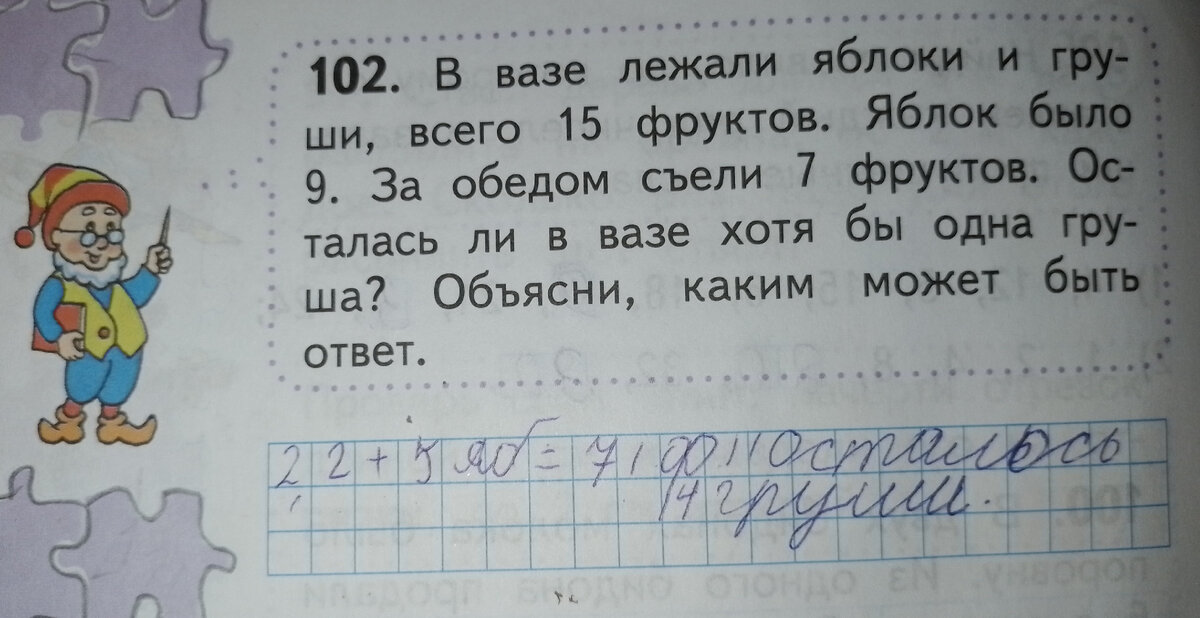 102. В вазе лежали яблоки и гру-
ши, всего 15 фруктов. Яблок было
9. За обедом съели 7 фруктов. Ос-
талась ли в вазе хотя бы одна гру-
ша? Объясни, каким может быть
ответ.
2 2 + 5 яб = 7 (ф) осталось
4 груши.